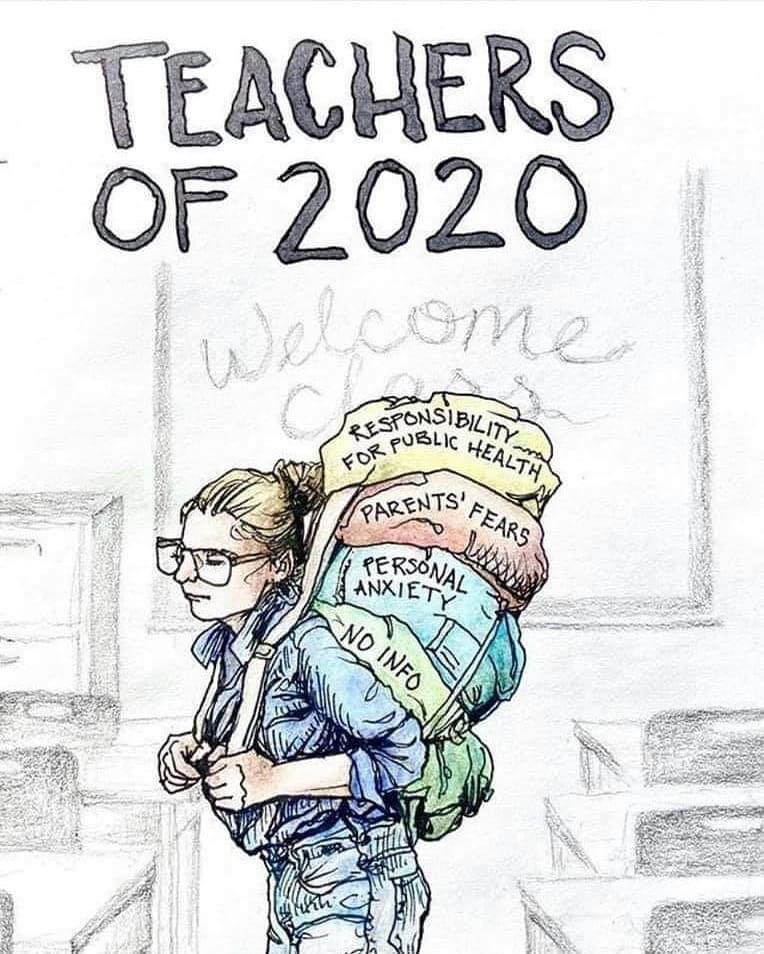 TEACHERS
OF 2020
Welcome
Class
RESPONSIBILITY
FOR PUBLIC HEALTH
PARENTS' FEARS
PERSONAL
ANXIETY
NO INFO